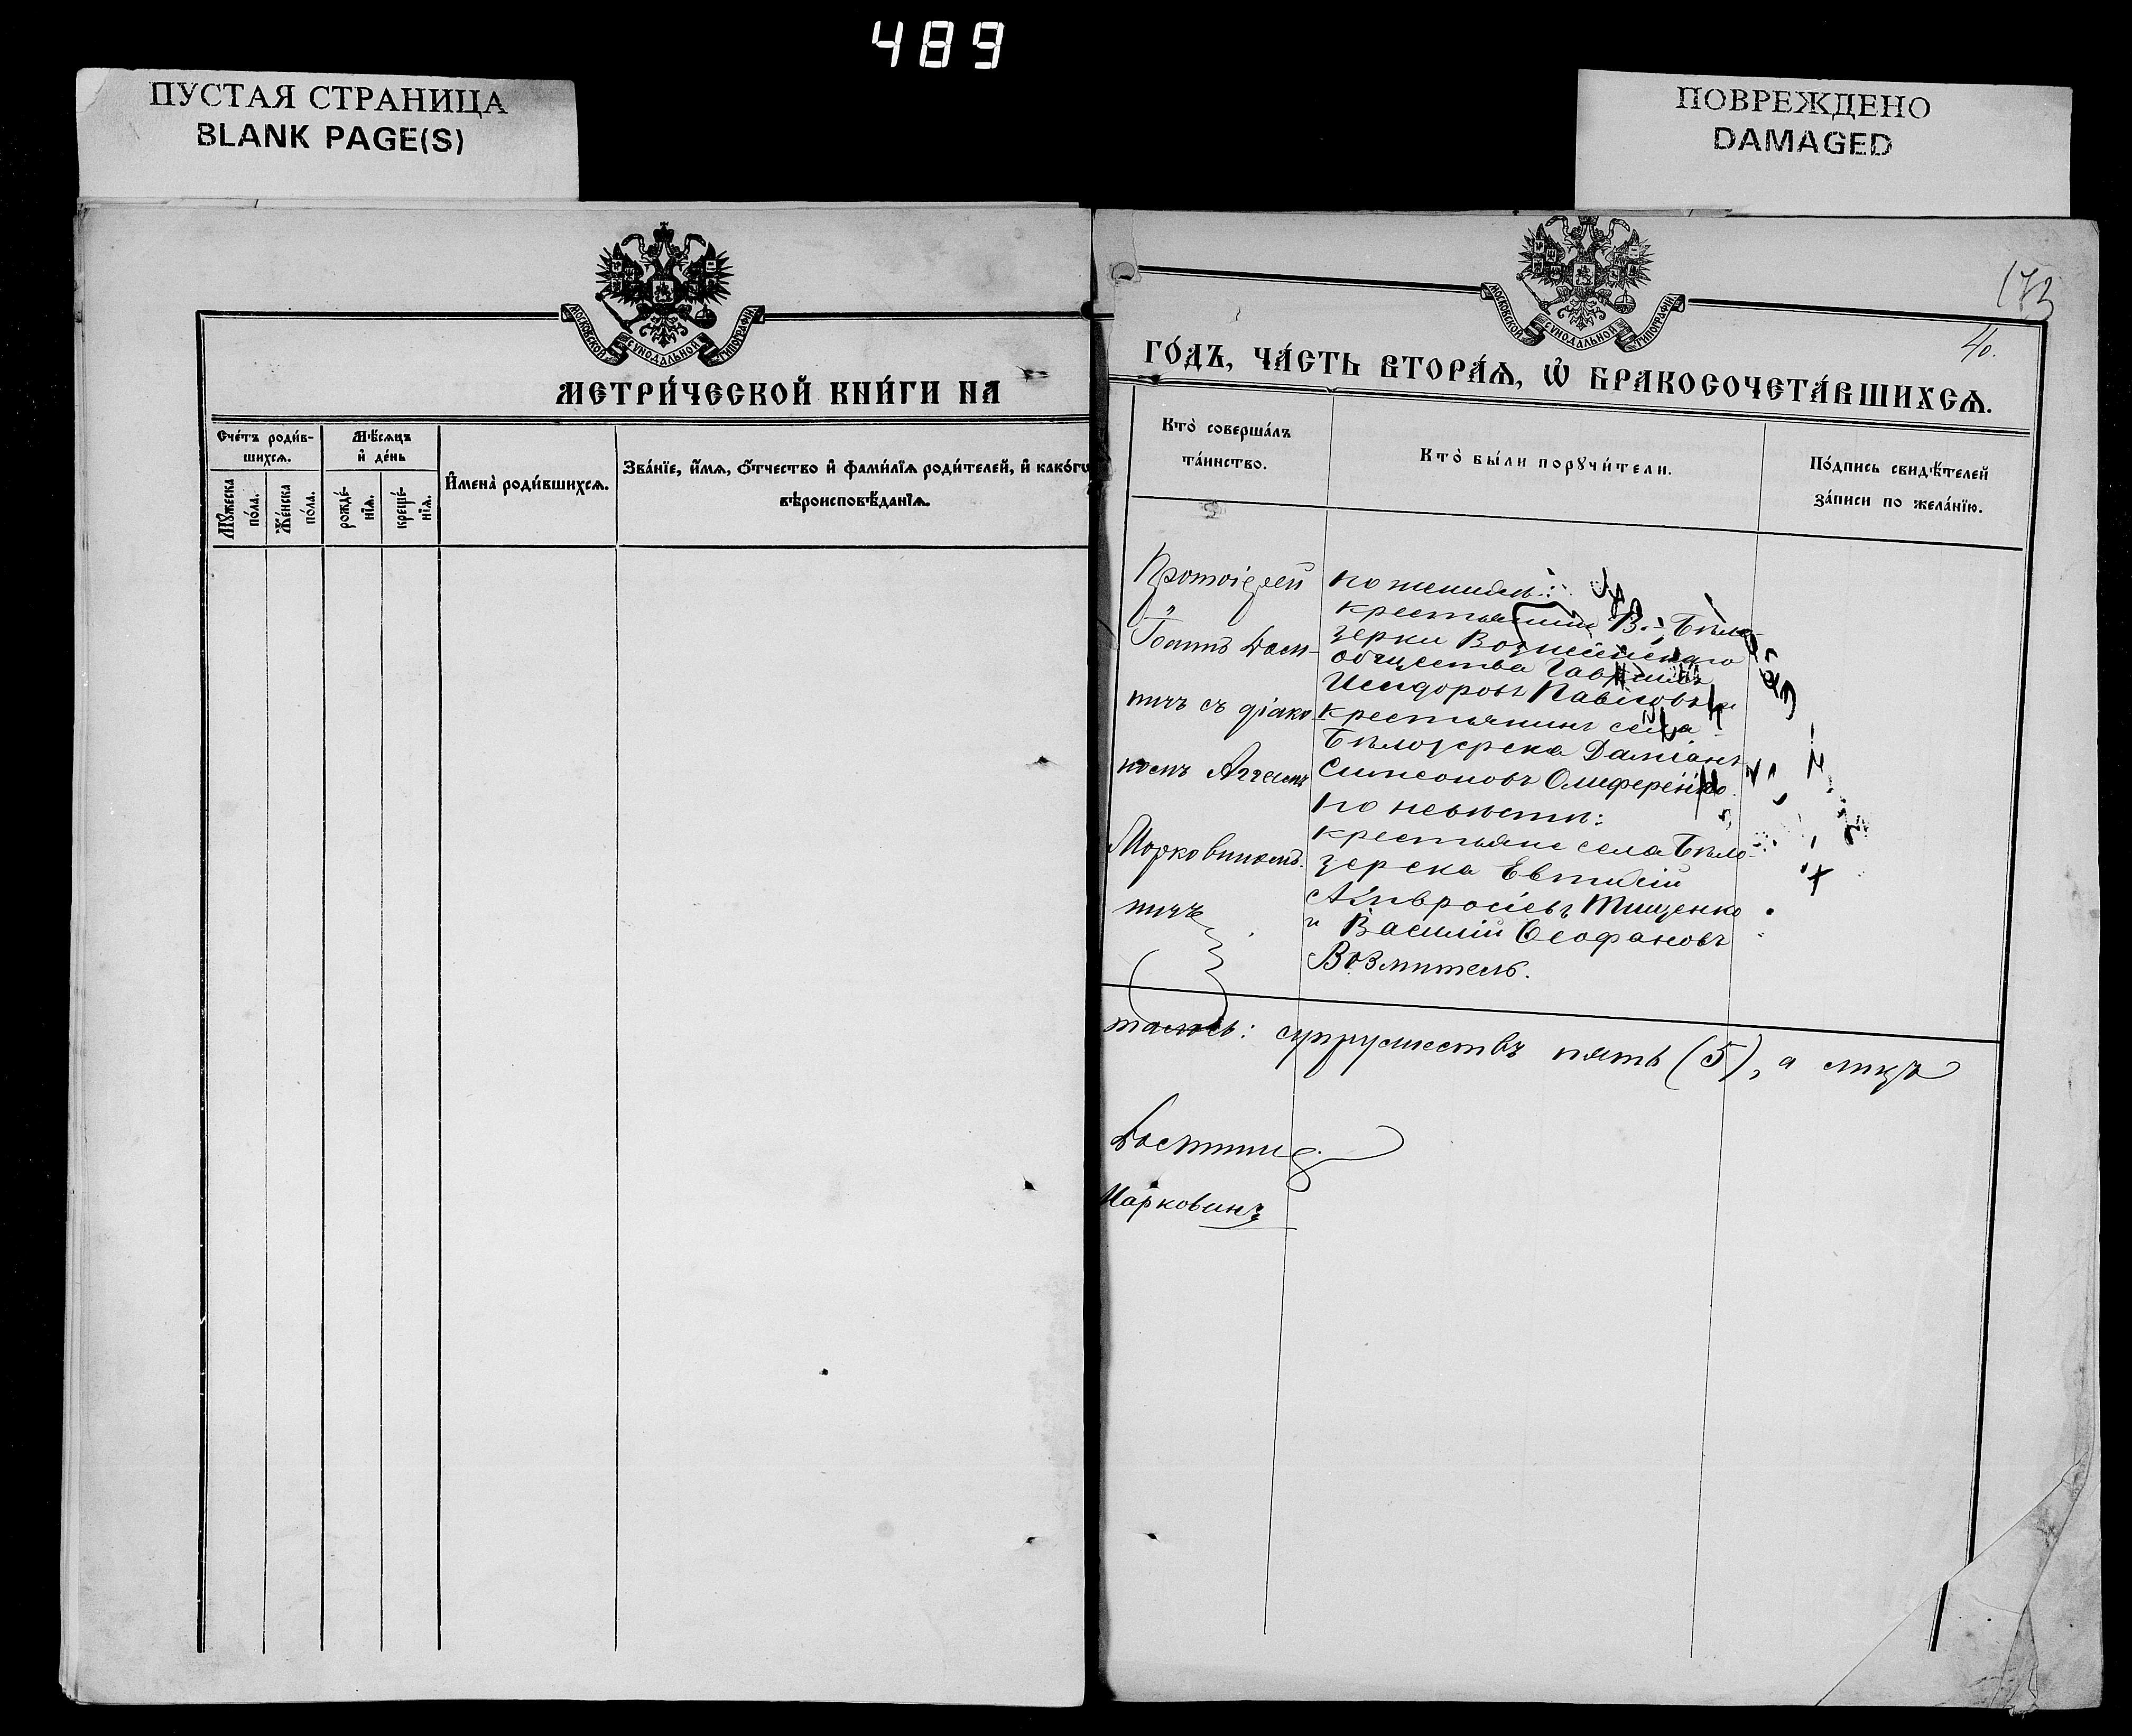 489
ПУСТАЯ СТРАНИЦА
BLANK PAGE(S)
ПОВРЕЖДЕНО
DAMAGED
МОСКОВСКОЙ СѴНОДАЛЬНОЙ ТИПОГРАФІИ
МЕТРИ́ЧЕСКОЙ КНИ́ГИ НА
Сче́тъ роди́в-
шихсѧ.
Мѣ́сѧцъ
и҆ де́нь
Мꙋ́жеска
по́ла.
Же́нска
по́ла.
рожде́-
нїѧ.
креще́-
нїѧ.
И҆мена̀ роди́вшихсѧ.
Зва́нїе, и҆́мѧ, ѻ҆́тчество и҆ фами́лїѧ роди́телей, и҆ како́гѡ
вѣроисповѣ́данїѧ.
МОСКОВСКОЙ СѴНОДАЛЬНОЙ ТИПОГРАФІИ
173
40.
ГО́ДЪ, ЧА́СТЬ ВТОРА́Ѧ, Ѡ҆ БРАКОСОЧЕТА́ВШИХСѦ.
Кто̀ соверша́лъ
та́инство.
Кто̀ бы́ли порꙋчи́тели.
По́дпись свидѣ́телей
за́писи по жела́нїю.
Протоіерей
Іоаннъ
ничъ съ діако-
номъ Аггеемъ
Марковины
ничъ
по женихѣ:
крестьянин В.-Бѣло-
зерки Вознесенскаго
общества
Исидоровъ
крестьянинъ села
Бѣлозерска Даміанъ
Симеоновъ Олиференко
по невѣстѣ:
крестьяне села Бѣло-
зерска Евтихій
Амвросіевъ Тищенко
и Василій Ѳеофановъ
талось: супружествъ пять (5), а лицъ
Марковинъ